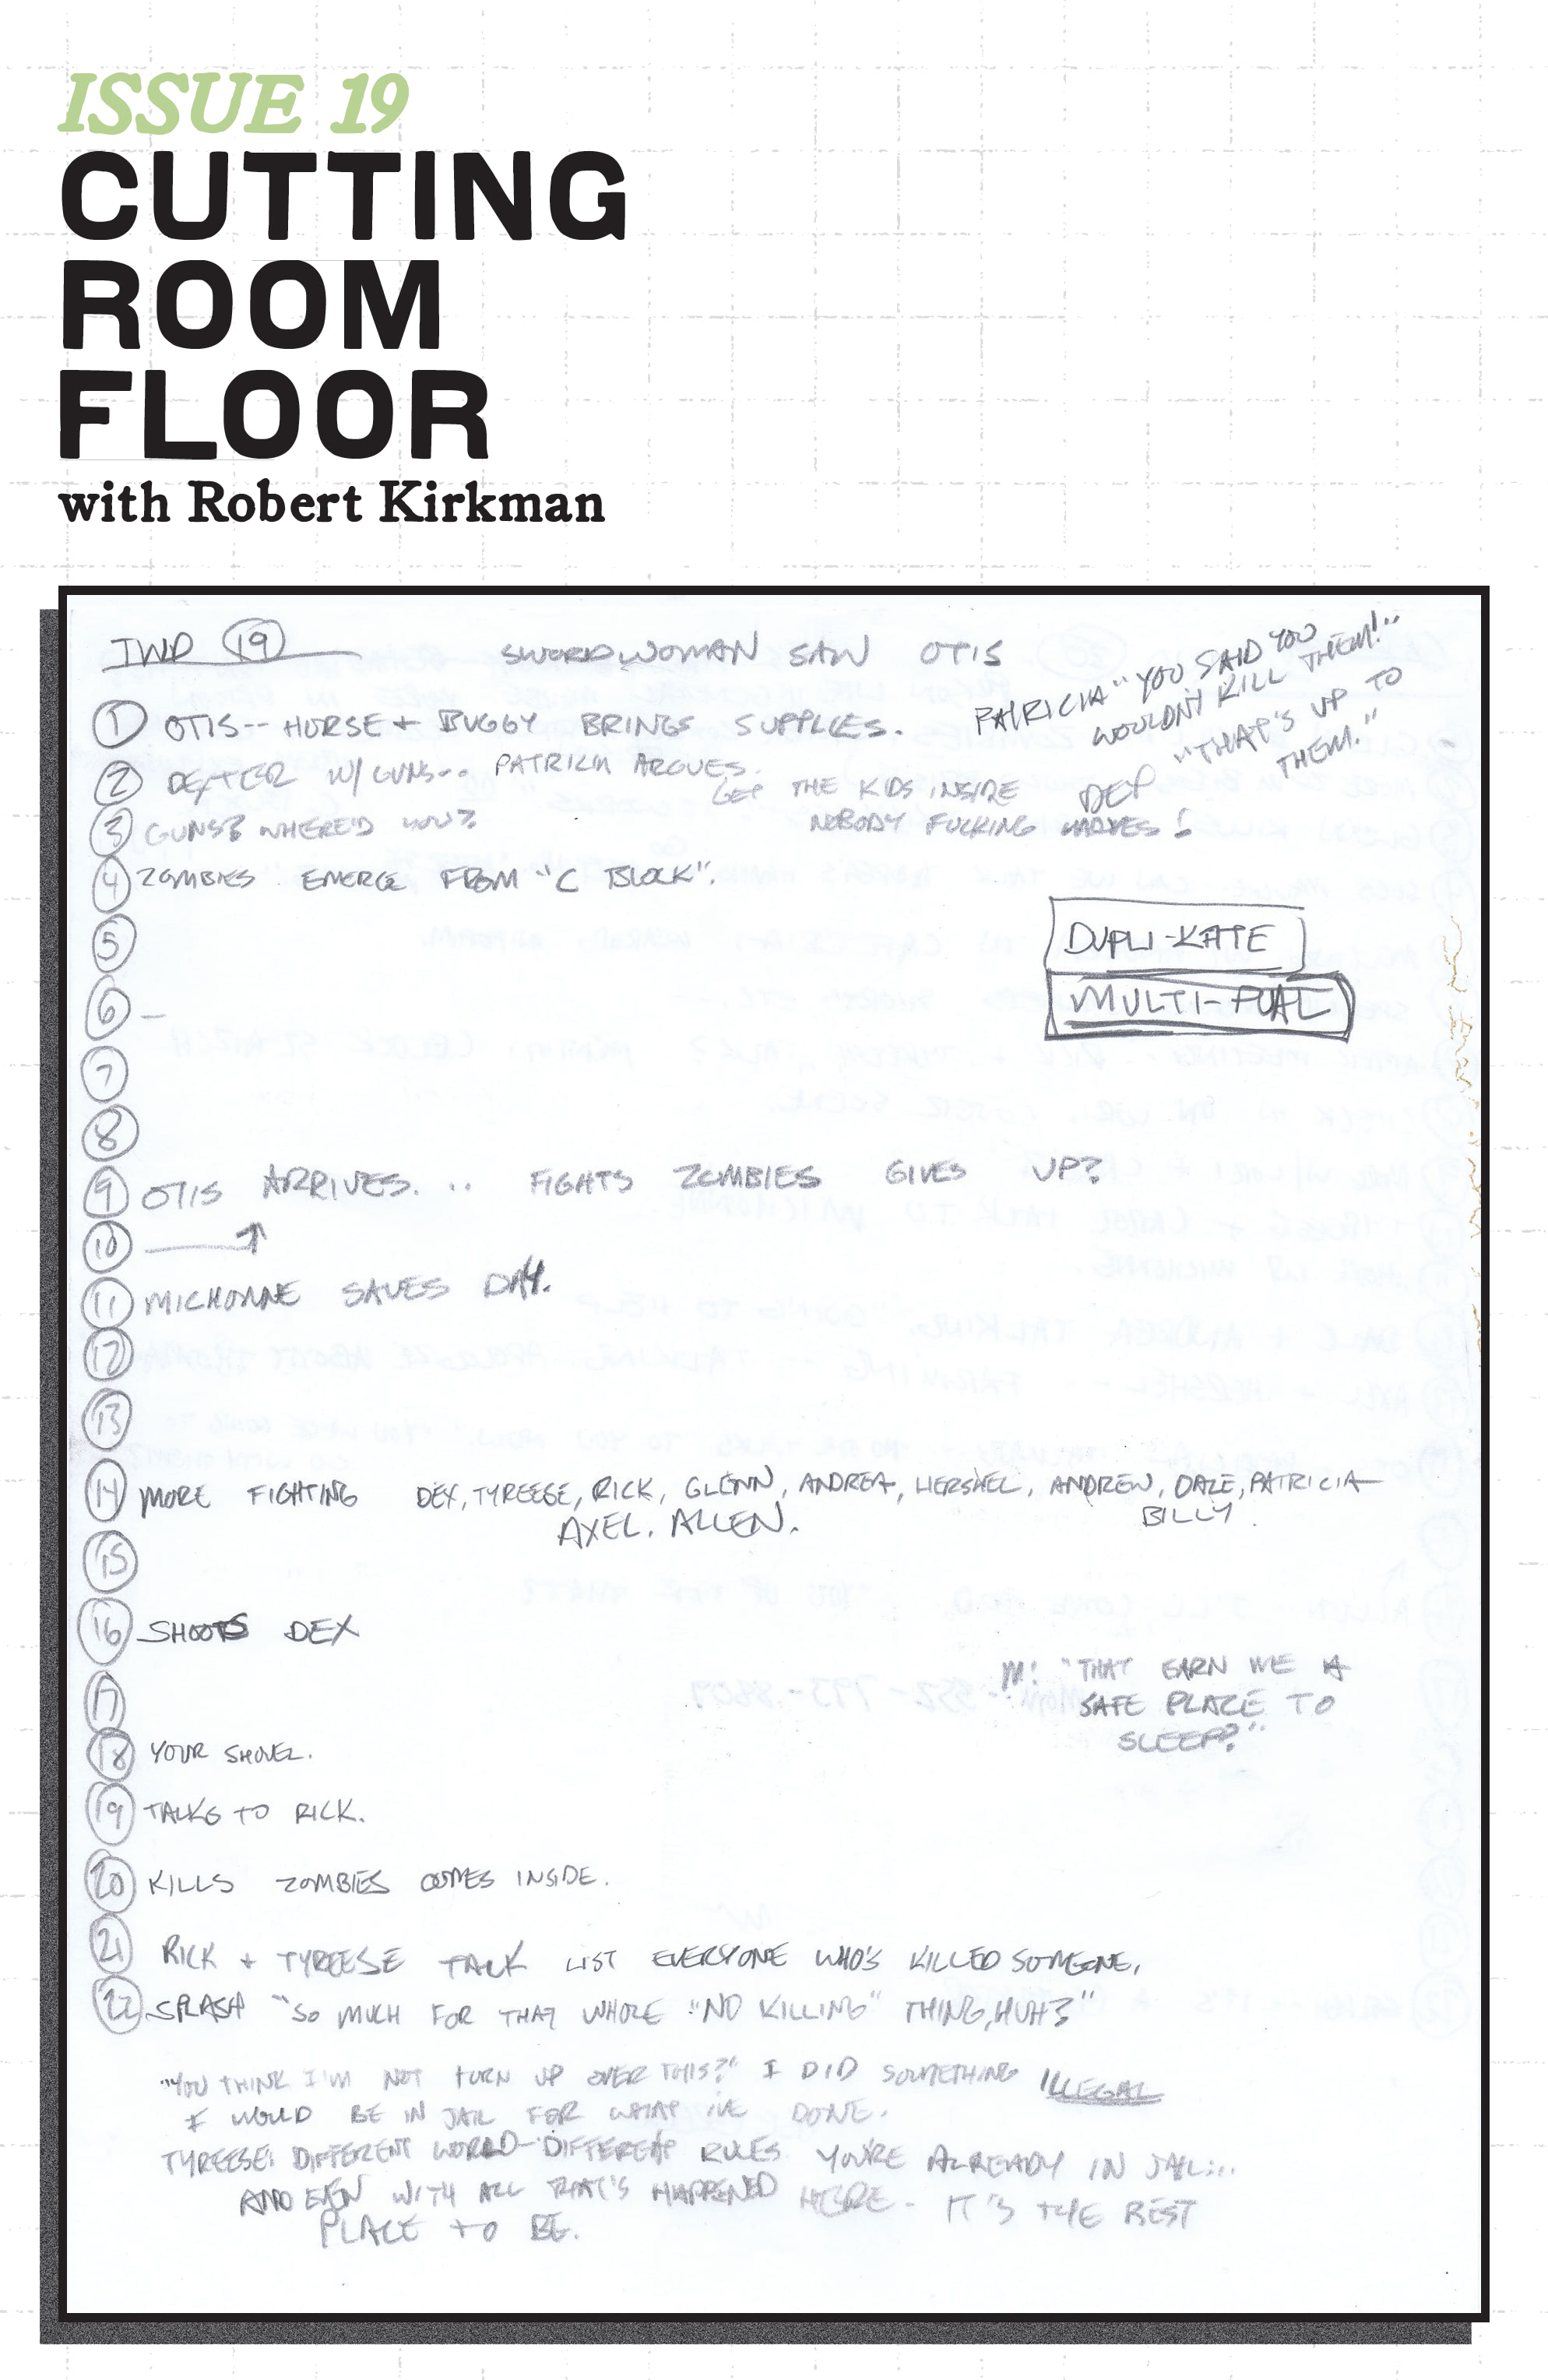 ISSUE 19
CUTTING
ROOM
FLOOR
with Robert Kirkman
TWD 19
SWORDWOMAN SAW OTIS
PATRICIA "YOU SAID YOU
WOULDN'T KILL THEM!"
"THAT'S UP TO
THEM."
1 OTIS-- HORSE + BUGGY BRINGS SUPPLIES.
2 DEXTER W/ GUNS-- PATRICIA ARGUES.
GET THE KIDS INSIDE
DEX
3 GUNS? WHERE'D YOU?
NOBODY FUCKING MOVES!
4 ZOMBIES EMERGE FROM "C BLOCK".
5
DUPLI-KATE
6 –
MULTI-PUAL
7
8
9 OTIS ARRIVES... FIGHTS ZOMBIES GIVES UP?
10
11 MICHONNE SAVES DAY.
12
13
14 MORE FIGHTING DEX, TYREESE, RICK, GLENN, ANDREA, HERSHEL, ANDREW, DALE, PATRICIA
AXEL. ALLEN. BILLY.
15
16 SHOOTS DEX
M: "THAT EARN ME A
17
SAFE PLACE TO
SLEEP?"
18 YOUR SHOVEL.
19 TALKS TO RICK.
20 KILLS ZOMBIES COMES INSIDE.
21 RICK + TYREESE TALK LIST EVERYONE WHO'S KILLED SOMEONE.
22 SPLASH "SO MUCH FOR THAT WHOLE "NO KILLING" THING, HUH?"
"YOU THINK I'M NOT TORN UP OVER THIS?" I DID SOMETHING ILLEGAL
I WOULD BE IN JAIL FOR WHAT I'VE DONE.
TYREESE: DIFFERENT WORLD--DIFFERENT RULES YOU'RE ALREADY IN JAIL...
AND EVEN WITH ALL THAT'S HAPPENED HERE - IT'S THE BEST
PLACE TO BE.